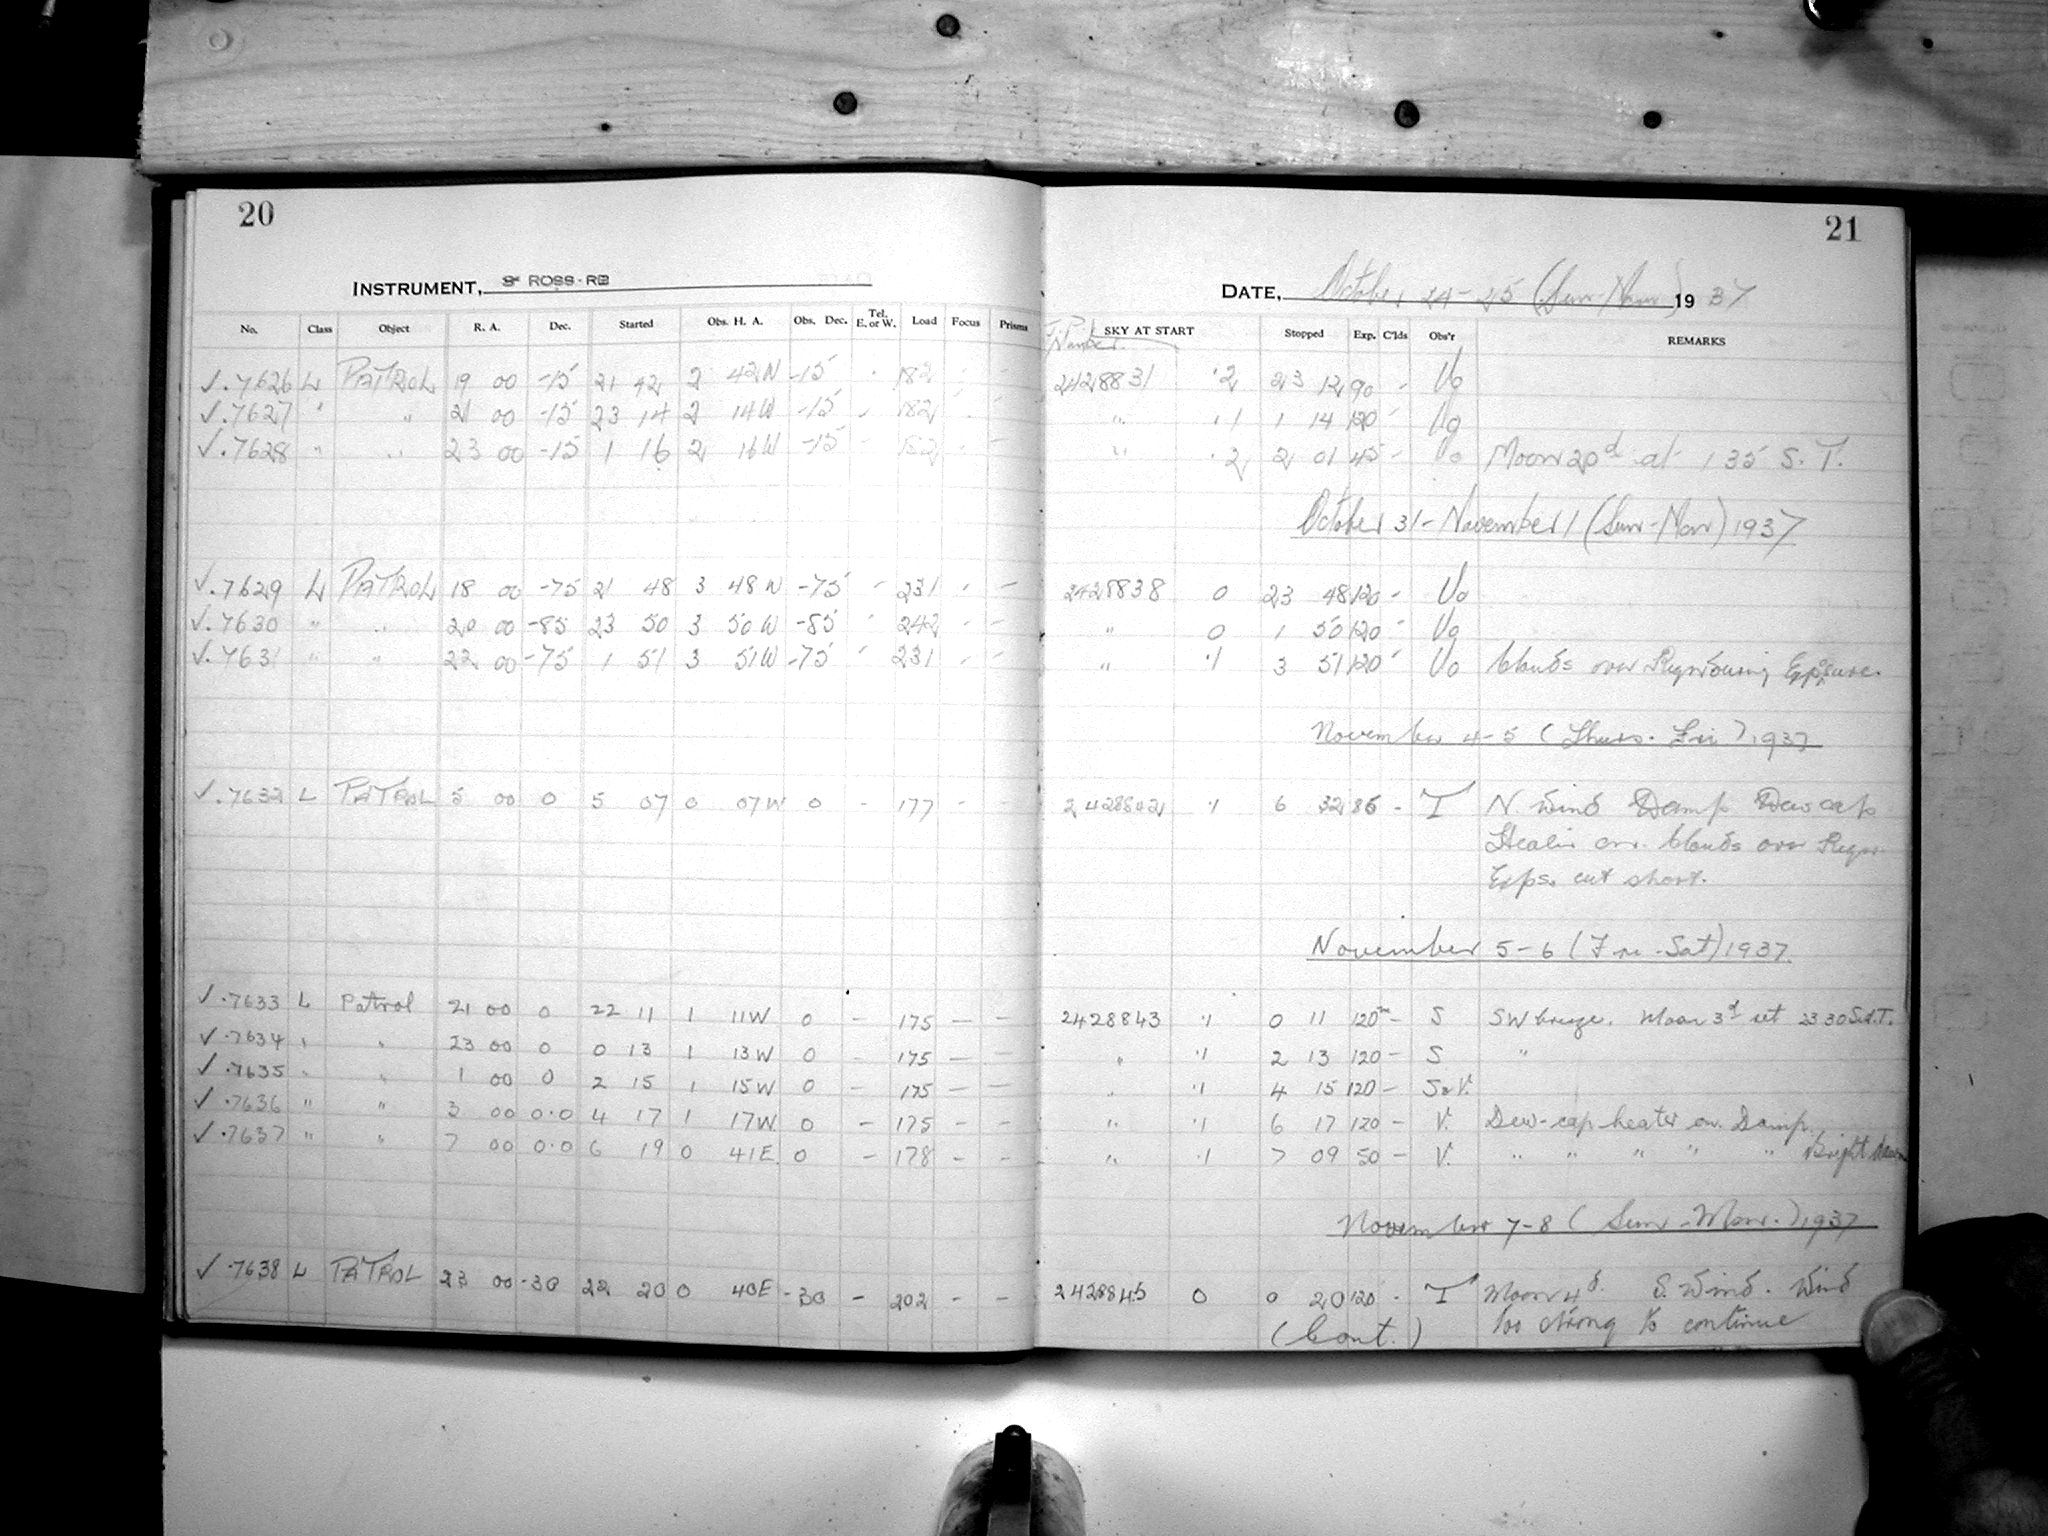 20
21
INSTRUMENT, 3" ROSS-RB
DATE, October 24-25 (Sun-Mon) 1937
No. Class Object R. A. Dec. Started Obs. H. A. Obs. Dec. Tel. E. or W. Load Focus Prisms SKY AT START Stopped Exp. C'lds Obs'r REMARKS
Number.
✓.7626 L PATROL 19 00 -15 21 42 2 42W -15 - 182 - - 2428831 ·2 23 12 90 -
✓.7627 " " 21 00 -15 23 14 2 14W -15 - 182 - - " ·1 1 14 120 -
✓.7628 " " 23 00 -15 1 16 2 16W -15 - 182 - - " ·2 2 01 45 - Moon 20d at 1 35 S.T.
October 31-November 1 (Sun-Mon) 1937
✓.7629 L PATROL 18 00 -75 21 48 3 48W -75 - 231 - - 2428838 0 23 48 120 -
✓.7630 " " 20 00 -85 23 50 3 50W -85 - 242 - - " 0 1 50 120 -
✓.7631 " " 22 00 -75 1 51 3 51W -75 - 231 - - " ·1 3 51 120 - Clouds over Region during Exposure.
November 4-5 (Thurs. Fri) 1937
✓.7632 L PATROL 5 00 0 5 07 0 07W 0 - 177 - - ·1 6 32 86 - T N. Wind Damp Dewcap
Heater on. Clouds over Region
Exps. cut short.
November 5-6 (Fri-Sat) 1937.
✓.7633 L Patrol 21 00 0 22 11 1 11W 0 - 175 - - 2428843 ·1 0 11 120m - S SW breeze. Moon 3d set 23 30 Sid.T.
✓.7634 " " 23 00 0 0 13 1 13W 0 - 175 - - " ·1 2 13 120 - S "
✓.7635 " " 1 00 0 2 15 1 15W 0 - 175 - - " ·1 4 15 120 - S&V.
✓.7636 " " 3 00 0·0 4 17 1 17W 0 - 175 - - " ·1 6 17 120 - V. Dew-cap-heater on. Damp.
✓.7637 " " 7 00 0·0 6 19 0 41E 0 - 178 - - " ·1 7 09 50 - V. " " " " " Bright dawn
November 7-8 (Sun-Mon.) 1937
✓.7638 L PATROL 23 00 -30 22 20 0 40E -30 - 202 - - 2428845 0 0 20 120 - T Moon 4d. S. Wind. Wind
(Cont.) too strong to continue